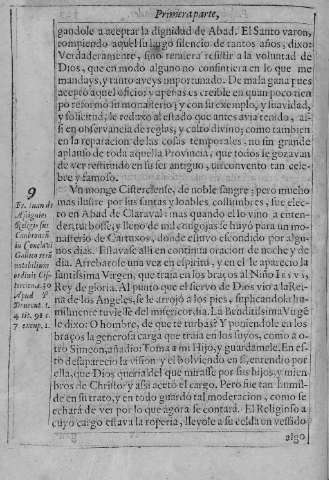 Primera parte,
gandole a aceptar la dignidad de Abad. El Santo varon,
rompiendo aquel su largo silencio de tantos años, dixo:
Verdaderamente, sino temiera resistir a la voluntad de
Dios, que en modo alguno no consintiera en lo que me
mandays, y tanto aveys importunado. De mala gana pues
aceptò aquel oficio; y apenas es creible en quan poco tien
po reformò su monasterio; y con su exemplo, y suavidad,
y solicitud, le reduxo al estado que antes avia tenido, as-
si en observancia de reglas, y culto divino; como tambien
en la reparacion de las cosas temporales, no sin grande
aplauso de toda aquella Provincia, que todos se gozavan
de ver restituido en su ser antiguo, un convento tan cele-
bre y famoso.
9
Fr. Iuan de
Assignies
Religioso
Cambronen
Vn monge Cisterciense, de noble sangre; pero mucho
mas ilustre por sus santas y loables costumbres, fue elec-
to en Abad de Claraval: mas quando el lo vino a enten-
der, turbosse, y lleno de mil congojas se huyò para un mo-
nasterio de Cartuxos, donde estuvo escondido por algu-
nos dias. Estavase alli en continua oracion de noche y de
dia. Arrebatado una vez en espiritu, y en el le apareciò la
santissima Virgen, que traia en los braços al Niño IESVS,
Rey de gloria. Al punto que el siervo de Dios vio a la Rei-
na de los Angeles, se le arrojò a los pies, suplicandola hu-
milmente tuviesse del misericordia. La Beatissima Virgē
le dixo: O hombre, de que te turbas? Y poniendole en los
braços la generosa carga que traia en los suyos, como a o-
tro Simeon, añadio: Toma a mi Hijo, y guardamele. En es-
to desapareciò la vision; y el bolviendo en si, entendio por
ella, que Dios queria del que mirasse por sus hijos, y miem
bros de Christo: y assi acetò el cargo. Pero fue tan humil-
de en su trato, y en todo guardò tal moderacion, como se
echarà de ver por lo que agora se contarà. El Religioso a
cuyo cargo estava la roperia, llevole a su celda un vestido
algo